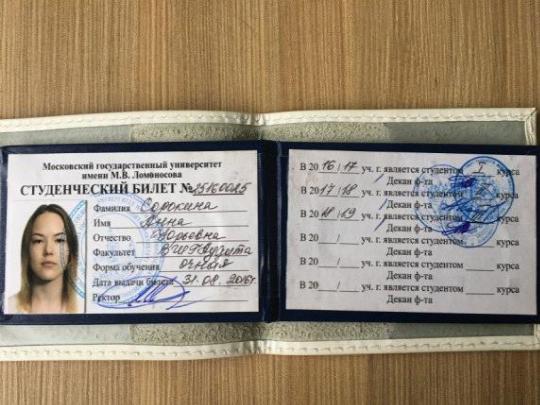 Московский государственный университет
имени М.В. Ломоносова
СТУДЕНЧЕСКИЙ БИЛЕТ № 25160025
Фамилия Сорокина
Имя Анна
Отчество Юрьевна
Факультет
Форма обучения очная
Дата выдачи билета 31.08.2016г
Ректор
В 2016/17 уч. г. является студентом I курса
Декан ф-та
В 2017/18 уч. г. является студентом курса
Декан ф-та
В 2018/19 уч. г. является студентом курса
Декан ф-та
В 20___/___ уч. г. является студентом ___ курса
Декан ф-та
В 20___/___ уч. г. является студентом ___ курса
Декан ф-та
В 20___/___ уч. г. является студентом ___ курса
Декан ф-та